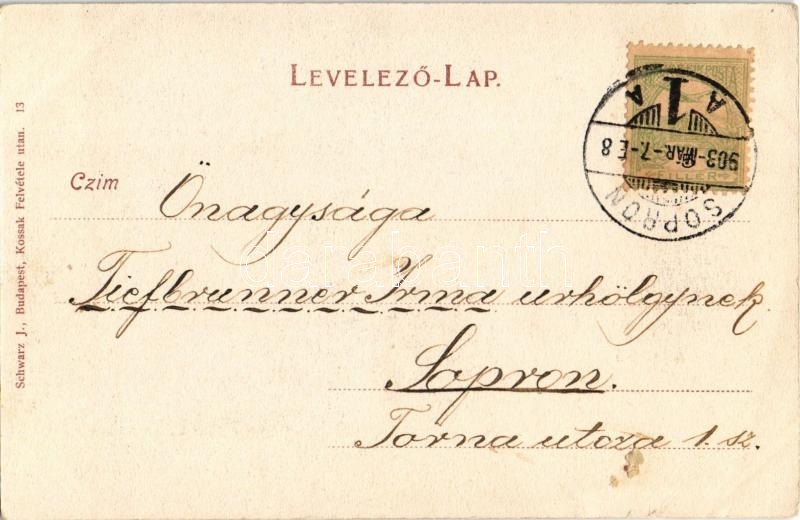 LEVELEZŐ-LAP.
Schwarz J., Budapest, Kossak Felvétele utan. 13
POSTA
FILLER
SOPRON
1
A A
903-MÁR-7.-E8
Czim Önagysága
Tiefbrunner Irma urhölgynek
Sopron.
Torna utcza 1. sz.